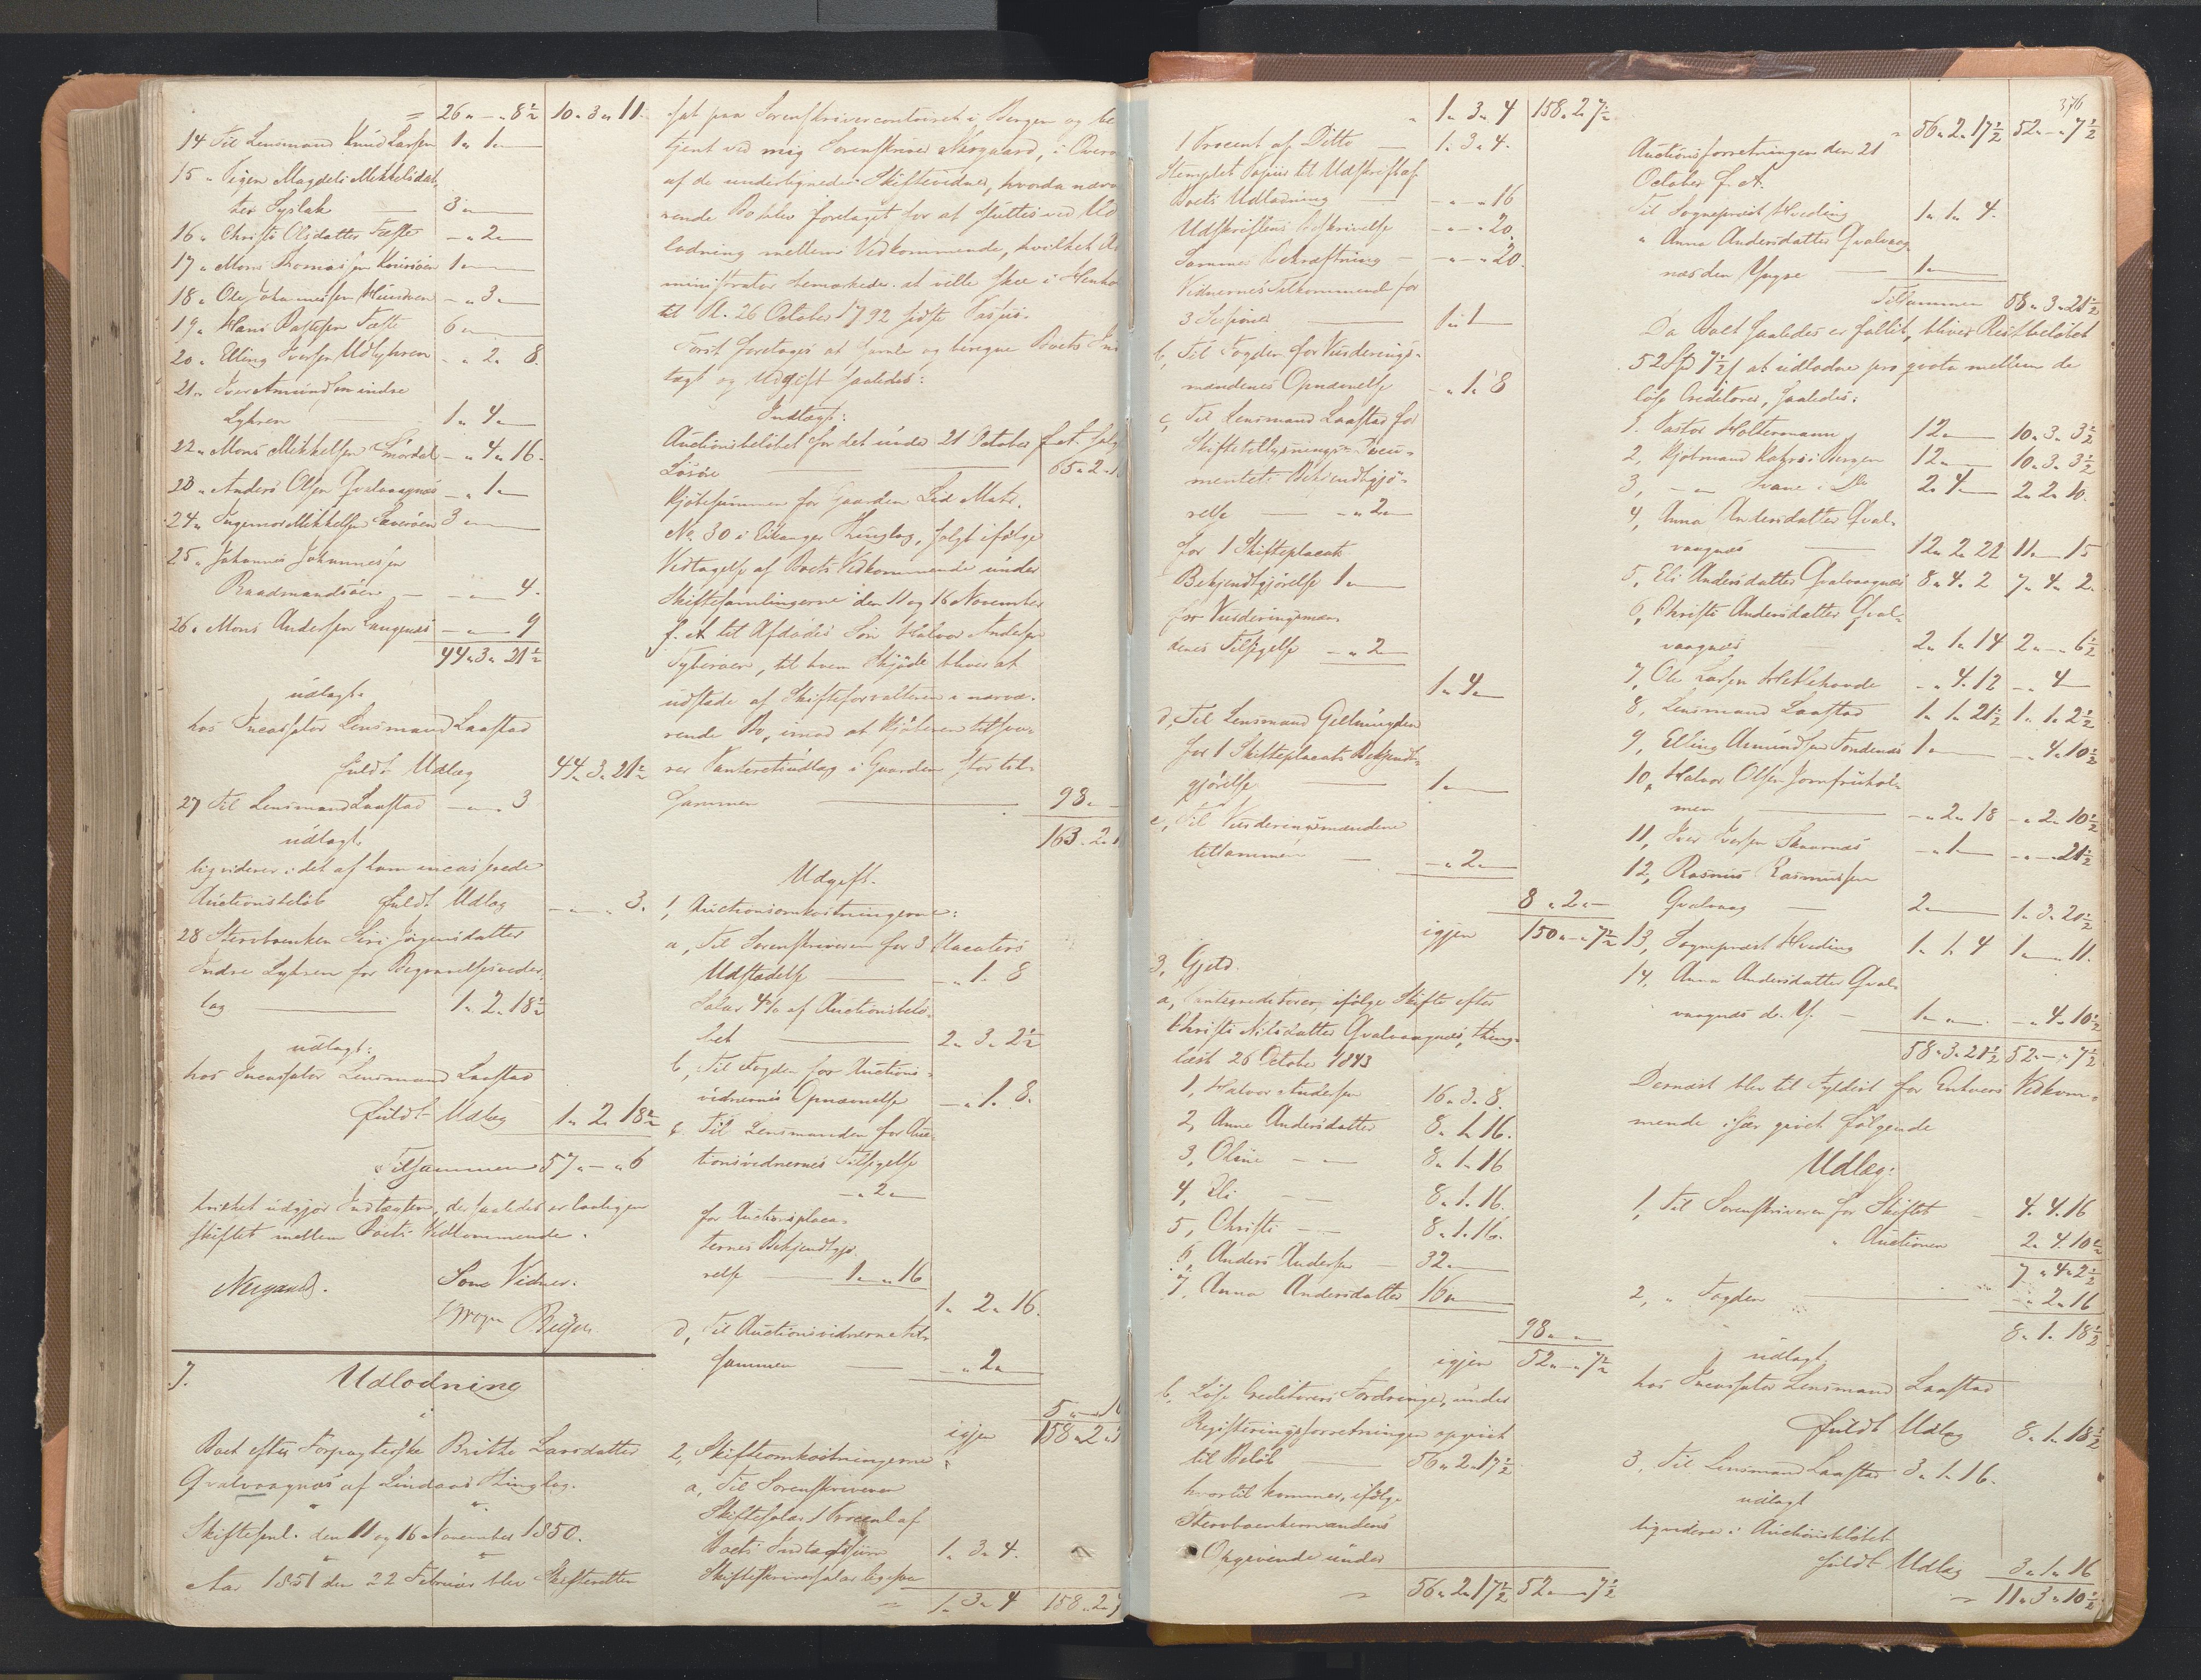 26 " - " 8½ 10 " 3 " 11.
14 Til Lensmand Knud Larsen 1 " 1 " -
15 " Pigen Magdeli Mikkelsdat-
ter Syslak 3 " -
16 " Christi Olsdatter Fæste - " 2 " -
17 " Mons 1 " -
18 " Ole Johannesen - " 3 " -
19 " Hans 6 " -
20 " Elling Iversen - " 2 " 8.
21 " Iver Amundsen indre
Lyhren 1 " 4 " -
22 " Mons Mikkelsen - " 4 " 16.
23 " Anders Olsen Qvalvaagnæs - " 1 " -
24 " Ingemor Mikkelsen 3 " -
25 " Johannes Johannesen
Raadmandsøen - " - " 4.
26 " Mons Andersen Langenæs - " - " 9
44 " 3 " 21½
udlagt.
hos Incassator Lensmand Laastad
fuldt Udlæg 44 " 3 " 21½
27 Til Lensmand Laastad - " - " 3
udlagt.
liqviderer i det af ham incasserede
Auctionsbeløb fuldt Udlæg - " - " 3.
28 Stervboenken Siri Jørgensdatter
Indre Lyhren for Begravelsesveder-
lag 1 " 2 " 18½
udlagt:
hos Incassator Lensmand Laastad
fuldt Udlæg 1 " 2 " 18½
Tilsammen 57 " - " 6
hvilket udgjør Indtægten, der saaledes er lovligen
skiftet mellem Boets Vedkommende.
Neergaard. Som Vidner:
7. Udlodning
i
Boet efter Forpagterske Britte Larsdatter
Qvalvaagnæs af Lindaas Thinglag.
Skiftesml. den 11 og 16 November 1850.
Aar 1851 den 22 Februar blev Skifteretten
sat paa Sorenskrivercontoiret i Bergen og be
tjent ved mig Sorenskriver Neergaard, i Overv
af de undertegnede Skiftevidner, hvorda nærvæ
rende Bo blev foretaget for at sluttes ved Ud
lodning mellem Vedkommende, hvilket Ad
ministrator bemærkede at ville skee i Henho
til Pl. 26 October 1792 sidste Passus.
Først foretoges at samle og beregne Boets In
tægt og Udgift saaledes:
Indtægt:
Auctionsbeløbet for det under 21 October f. A. solg
Løsøre 65 " 2 "
Kjøbesummen for Gaarden Lid Matr.
No. 30 i Eikanger Thinglag, solgt ifølge
Vedtagelse af Boets Vedkommende under
Skiftesamlingerne den 11 og 16 November
f. A. til Afdødes Søn Halvor Andersen
, til hvem Skjøde bliver at
udstede af Skifteforvalteren i nærvæ-
rende Bo, imod at Kjøberen tilsva-
rer Panteretsudlæg i Gaarden stor til-
sammen 98 "
163 " 2 "
Udgift.
1, Auctionsomkostningerne:
a, Til Sorenskriveren for 3 Placaters
Udstædelse - " 1 " 8
Salær 4% af Auctionsbelø-
bet 2 " 3 " 2½
b, Til Fogden for Auctions-
vidnernes Opnævnelse - " 1 " 8.
c. Til Lensmanden for Auc-
tionsvidnernes Tilsigelse
- " 2 " -
for Auctionsplaca-
ternes Bekjendtgjø-
relse 1 " - " 16
1 " 2 " 16.
d, Til Auctionsvidnerne til-
sammen - " 2 " -
5 " - "
igjen 158 " 2 "
2, Skifteomkostningerne:
a, Til Sorenskriveren
Skiftesalær 1 Procent af
Boets Indtægtssum 1 " 3 " 4.
Skifteskriversalær ligesaa
1 " 3 " 4 158 " 2 " 7
1 " 3 " 4 158 " 2 " 7½
1 Procent af Ditto 1 " 3 " 4.
Stemplet Papiir til Udskrift af
Boets Udlodning - " - " 16
Udskriftens Beskrivelse - " - " 20.
Sammes Bekræftning - " - " 20.
Vidnernes Tilkommende for
3 Sessioner 1 " 1 " -
b, Til Fogden for Vurderings-
mændenes Opnævnelse - " 1 " 8
c, Til Lensmand Laastad for
Skiftetillysnings-Docu-
mentets Bekjendtgjø-
relse - " 2 " -
for 1 Skifteplacats
Bekjendtgjørelse 1 " -
for Vurderingsmæn-
denes Tilsigelse - " 2 " -
1 " 4 " -
d, Til Lensmand Gellmuyden
for 1 Skifteplacats Bekjendt-
gjørelse 1 " -
e, Til Vurderingsmændene
tilsammen - " 2 " -
8 " 2 " -
igjen 150 " - " 7½
3, Gjeld.
a, Pantecreditorer, ifølge Skifte efter
Christi Nilsdatter Qvalvaagnæs, thing-
læst 26 October 1843
1, Halvor Andersen 16 " 3 " 8.
2, Anne Andersdatter 8 " 1 " 16.
3, Oline - - 8 " 1 " 16
4, Eli - - 8 " 1 " 16.
5, Christi - 8 " 1 " 16.
6, Anders Andersen 32 " -
7, Anna Andersdatter 16 " -
98 " -
igjen 52 " - " 7½
b, Løse Creditorers Fordringer, under
Registreringsforretningen opgivet
til Beløb 56 " 2 " 17½
hvortil kommer, ifølge
Stervboenkemandens
Opgivende under
56 " 2 " 17½ 52 " - " 7½
376
56 " 2 " 17½ 52 " - " 7½
Auctionsforretningen den 21
October f. A.
Til Sogneprest Hveding 1 " 1 " 4.
" Anna Andersdatter Qvalvaag-
næs den Yngre 1 " -
Tilsammen 58 " 3 " 21½
Da Boet saaledes er fallit, bliver Restbeløbet
52 Spd 7½ s at udlodne pro qvota mellem de
løse Creditorer, saaledes:
1. Pastor Holtermann 12 " - 10 " 3 " 3½
2, Kjøbmand i Bergen 12 " - 10 " 3 " 3½
3, - " - i Do 2 " 4 " - 2 " 2 " 10.
4, Anna Andersdatter Qval-
vaagnæs 12 " 2 " 22 11 " - " 15
5, Eli Andersdatter Qvalvaagnæs 8 " 4 " 2 7 " 4 " 2.
6, Christi Andersdatter Qval-
vaagnæs 2 " 1 " 14 2 " - " 6½
7, Ole Larsen - " 4 " 12 - " 4 -
8, Lensmand Laastad 1 " 1 " 21½ 1 " 1 " 2½
9, Elling Amundsen Tondenæs 1 " - - " 4 " 10½
10, Halvor Olsen Jomfruehol-
men - " 2 " 18 - " 2 " 10½
11, Iver Iversen - " 1 " - - " - " 21½
12, Rasmus Rasmussen
Qvalvaag 2 " - 1 " 3 " 20½
13, Sogneprest Hveding 1 " 1 " 4 1 " - " 11.
14, Anna Andersdatter Qval-
vaagnæs d. Y. 1 " - - " 4 " 10½
58 " 3 " 21½ 52 " - " 7½
Dernæst blev til Fyldest for Enhvers Vedkom-
mende især givet følgende
Udlæg:
1, Til Sorenskriveren for Skiftet 4 " 4 " 16
" Auctionen 2 " 4 " 10½
7 " 4 " 2½
2, " Fogden - " 2 " 16
8 " 1 " 18½
udlagt
hos Incassator Lensmand Laastad
fuldt Udlæg 8 " 1 " 18½
3, Til Lensmand Laastad 3 " 1 " 16.
udlagt
liqviderer i Auctionsbeløbet
fuldt Udlæg 3 " 1 " 16
11 " 3 " 10½